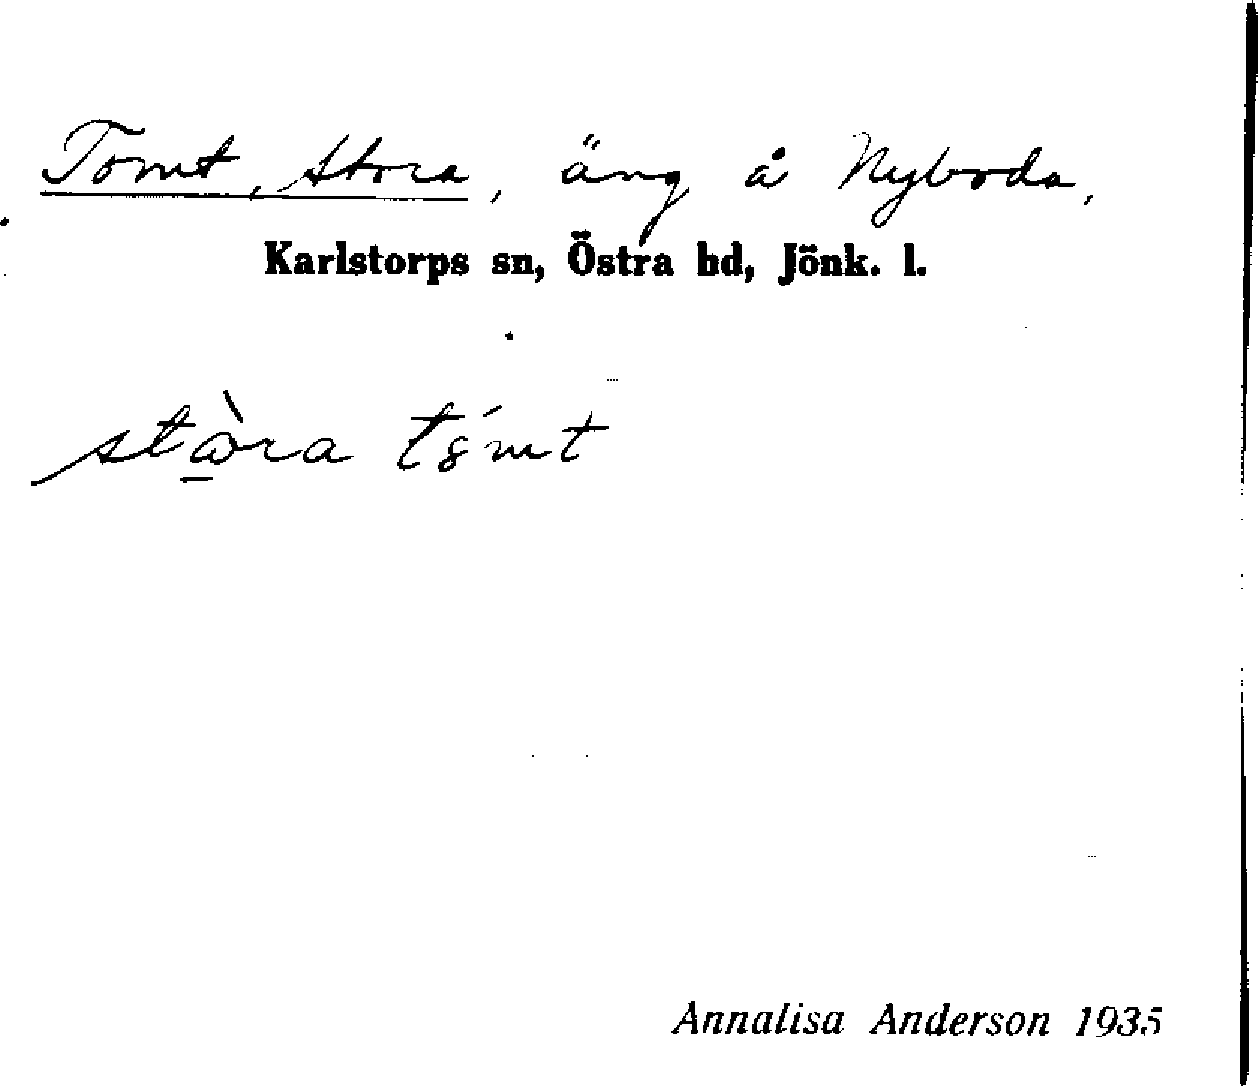 Tomt, Stora, äng å Nyboda,
Karlstorps sn, Östra hd, Jönk. l.
stὼra t8́mt
Annalisa Anderson 1935